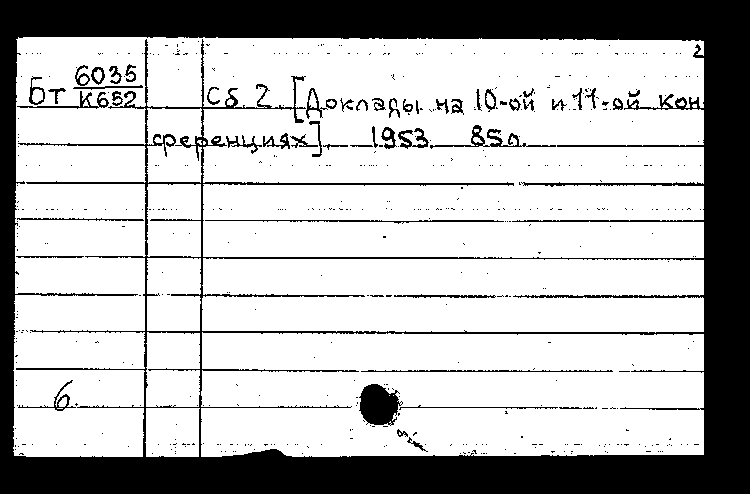 2
Бт 6035
К652
Сб. 2. [Доклады на 10-ой и 11-ой кон-
ференциях]. 1953. 85л.
6.